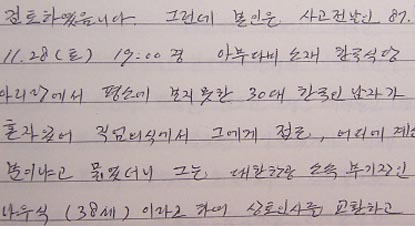 검토하였읍니다. 그런데 본인은 사고전날인 87.
11.28(토) 19:00경 아부다비 소재 한국식당
아리랑에서 평소에 보지 못한 30대 한국인 남자가
혼자 있어 직업의식에서 그에게 접근, 어디에 계신
분이냐고 물었더니 그는 대한항공 소속 부기장인
나우식 (38세) 이라고 하여 상호인사를 교환하고